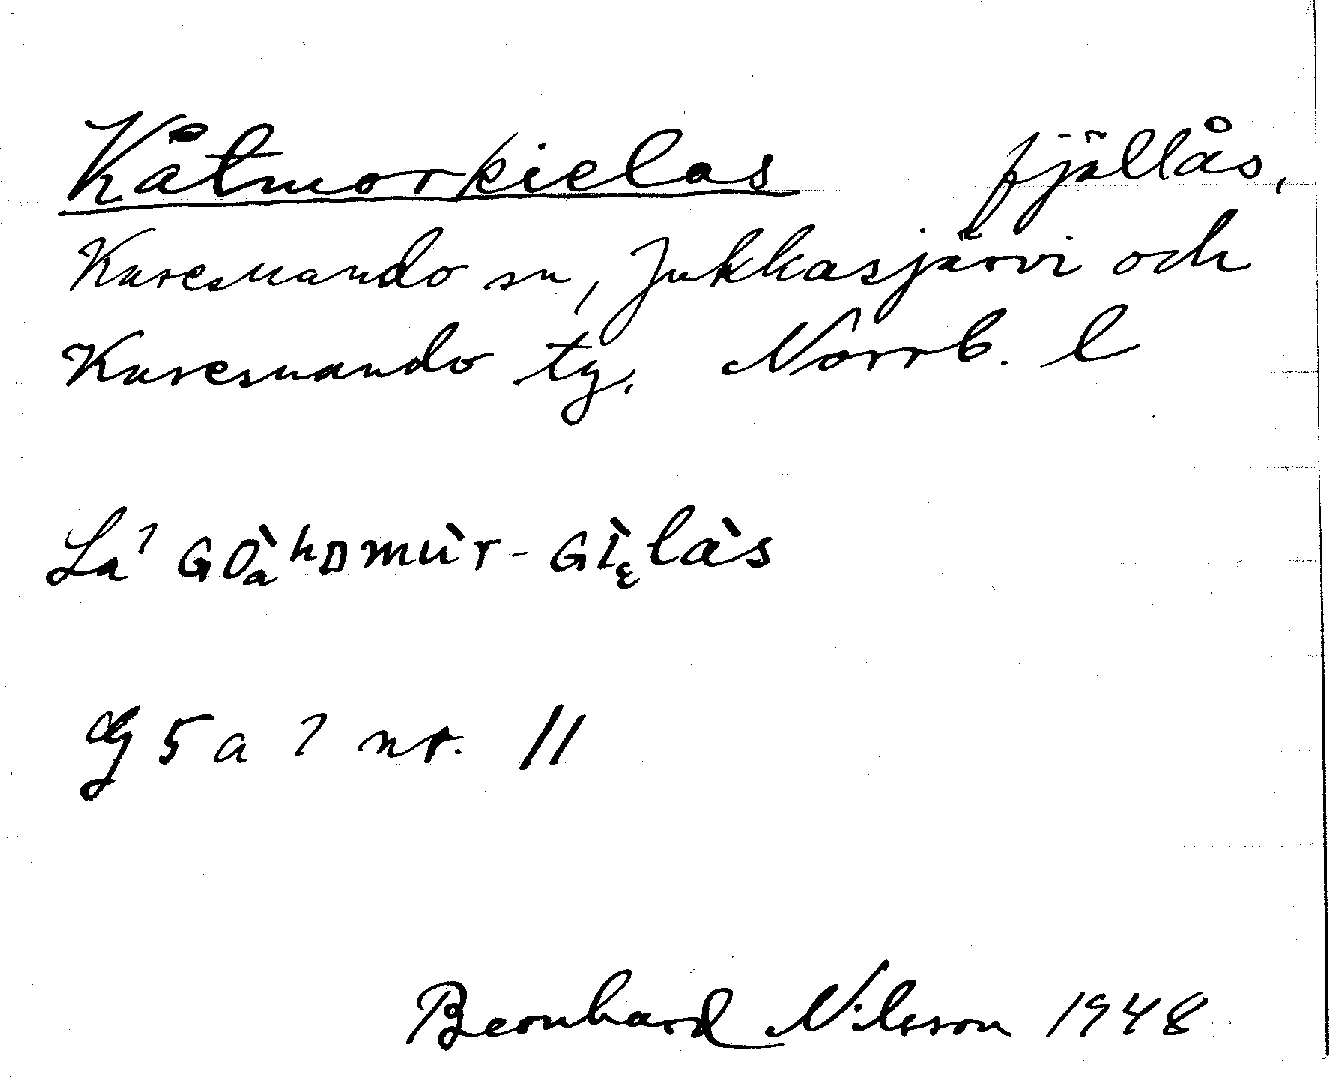 Kåtmorkielas fjällås,
Karesuando sn, Jukkasjärvi och
Karesuando tg. Norrb. l
La? GOàʰDmùr-GÌɛlàs
G 5 a ? nr. 11
Bernhard Nilsson 1948